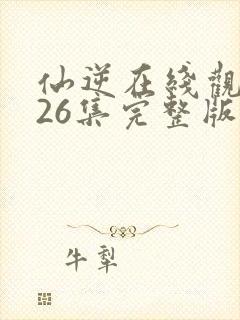 仙逆在线觀
26集完整版
牛犁